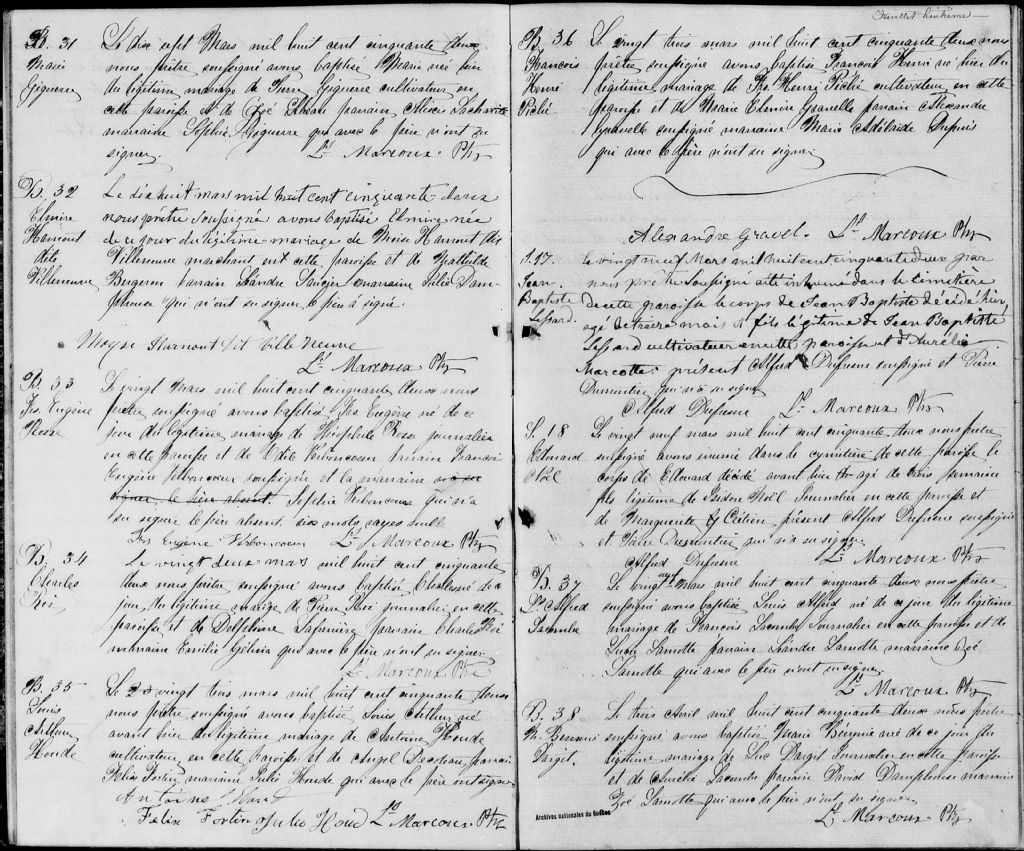 B. 31
Marie
Giguerre
Le dix sept Mars mil huit cent cinquante deux
nous prêtre soussigné avons baptisé Marie né hier
du légitime mariage de Pierre Giguerre cultivateur en
cette paroisse et de parrain
marraine Sophie Giguerre qui avec le père n'ont su
signer. Ls Marcoux Ptre
B. 32
Elmire
Hamont
dite
Villeneuve
Le dix huit mars mil huit cent cinquante deux
nous prêtre soussigné avons baptisé Elmire née
de ce jour du légitime mariage de Moise Hamont dit
Villeneuve marchand en cette paroisse et de Mathilde
Bergeron parrain Léandre marraine Julie Dam-
phousse qui n'ont su signer le père a signé.
Moyse Harnont Dit Ville Neuve
Ls Marcoux Ptre
B. 33
Frs. Eugène
Rosse
Le vingt Mars mil huit cent cinquante deux nous
prêtre soussigné avons baptisé Frs Eugène né de ce
jour du légitime mariage de Théophile Rosse journalier
en cette paroisse et de Odile Verboncoeur parrain Francois
Eugène Verboncoeur soussigné et la marraine n'a su
signer le père absent. Sophie Verboncoeur qui n'a
su signer le père absent. six mots rayés nuls
Frs Eugène Verboncoeur Ls Marcoux Ptre
B. 34
Charles
Roi
Le vingt deux mars mil huit cent cinquante
deux nous prêtre soussigné avons baptisé Charles né de ce
jour du légitime mariage de Pierre Roi journalier en cette
paroisse et de Delphine parrain Charles Roi
marraine Emilie Gélina qui avec le père n'ont su signer
Ls Marcoux Ptre
B. 35
Louis
Arthur
Houde
Le 23 vingt trois mars mil huit cent cinquante deux
nous prêtre soussigné avons baptisé Louis Arthur né
avant hier du légitime mariage de Antoine Houde
cultivateur en cette paroisse et de Angel parrain
Félix Fortin marraine Julie Houde qui avec le père ont signé
Antoine Houd
Felix Fortin Julie Houd Ls Marcoux Ptre
Feuillet huitième
B. 36
Francois
Henri
Piché
Le vingt trois mars mil huit cent cinquante deux nous
prêtre soussigné avons baptisé François Henri né hier du
légitime mariage de Frs. Henri Piché cultivateur en cette
paroisse et de Marie Elmire Gravelle parrain Alexandre
Gravelle soussigné marraine Marie Adélaide Dupuis
qui avec le père n'ont su signer
Alexandre Gravel. Ls Marcoux Ptre
S. 17.
Jean
Baptiste
Lessard.
Le vingt neuf Mars mil huit cent cinquante deux par
nous prêtre soussigné a été inhumé dans le cimetière
de cette paroisse le corps de Jean Baptiste décédé hier
agé de treize mois et fils légitime de Jean Baptiste
Lessard cultivateur en cette paroisse et d'Aurélie
Marcotte. présent Alfred Dufresne soussigné et Pierre
Dumontier qui n'a su signer
Alfred Dufresne Ls Marcoux Ptre
S. 18
Edouard
Noël
Le vingt neuf mars mil huit cent cinquante deux nous prêtre
soussigné avons inhumé dans le cymetière de cette paroisse le
corps de Edouard décédé avant hier agé de trois semaine
fils légitime de Isidore Noël Journalier en cette paroisse et
de Marguerite présent Alfred Dufresne soussigné
et Pierre Dumontier qui n'a su signer
Alfred Dufresne Ls Marcoux Ptre
B. 37
Ls Alfred
Lacombe
Le vingt sept Mars mil huit cent cinquante deux nous prêtre
soussigné avons baptisé Louis Alfred né de ce jour du légitime
mariage de François Lacombe Journalier en cette paroisse et de
Lamotte parrain Léandre Lamotte marraine Zoé
Lamotte qui avec le père n'ont su signer.
Ls Marcoux Ptre
B. 38
M.
Dargit.
Le trois Avril mil huit cent cinquante deux nous prêtre
soussigné avons baptisé Marie né de ce jour du
légitime mariage de Luc Dargit Journalier en cette paroisse
et de Aurélie Lacombe parrain David Damphousse marraine
Zoé Lamotte qui avec le père n'ont su signer
Ls Marcoux Ptre
Archives nationales du Québec